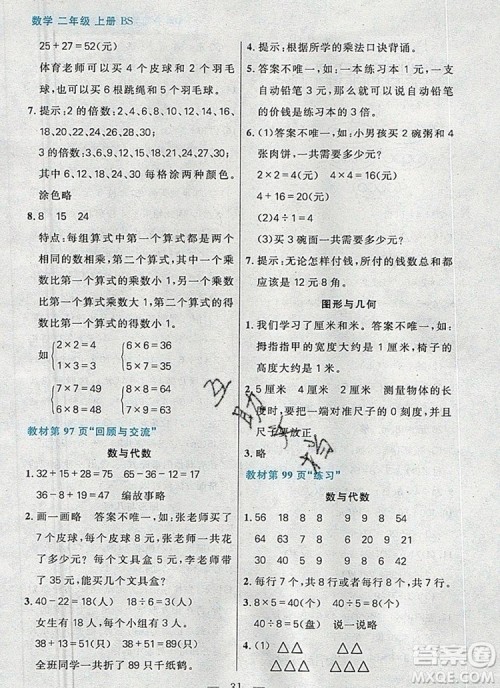 数学 二年级 上册 BS
25+27=52(元)
体育老师可以买 4 个皮球和 8 个羽毛
球,也可以买 6 根跳绳和 5 个羽毛球。
7. 提示:2 的倍数:2、4、6、8、10、12、14、16、
18、20、22、24、26、28、30
3 的倍数:3、6、9、12、15、18、21、24、27、30
其中,6、12、18、24、30 每格涂两种颜色。
涂色略
8. 8 15 24
特点:每组算式中第一个算式都是两个
相同的数相乘;第二个算式中,一个乘
数比第一个算式的乘数小 1,另一个乘
数比第一个算式大 1;第二个算式的得
数比第一个算式的得数小 1。
如 2×2=4 6×6=36
1×3=3 5×7=35
7×7=49 8×8=64
6×8=48 7×9=63
教材第 97 页“回顾与交流”
数与代数
1. 32-15=17 62-35+15=42
36-8+19=47 编故事略
2. 画一画略 答案不唯一,如,张老师买
了 7 个皮球,每个皮球 4 元,一共花了
多少元? 一个文具盒 5 元,李老师带
了 35 元,能买几个文具盒?
3. 40-22=18(人) 18÷6=3(人)
女生有 18 人,平均每组有 3 人。
38+13=51(只) 38+51=89(只)
全班同学一共折了 89 只千纸鹤。
4. 提示:根据所学的乘法口诀背诵。
5. 答案不唯一,如:一本练习本 1 元,一支
自动铅笔 3 元,那么可以说自动铅笔
的价钱是练习本的 3 倍。
6. (1)答案不唯一,如:小男孩买 2 碗粥和 4
张肉饼,一共需要多少元?
2×2=4(元) 4×4=16(元)
4+16=20(元)
(2)4÷1=4
(3)买 3 碗面一共需要多少元?
3×3=9(元)
7. 提示:无论怎样付钱,付的钱数总和都
应该是 20 元。
图形与几何
1. 我们学习了厘米和米。答案不唯一,如:
拇指指甲的宽度大约是 1 厘米,椅子的
高度大约是 1 米。
2. 5 厘米 4 厘米 测量物体的长
度时,要把一端对准尺子的 0 刻度,并且
尺子要放正。
3. 略
教材第 99 页“练习”
数与代数
1. 56 18 34 8 9 9 5 8
54 18 64 6 7 9 7 4
60 32 45 9 9 8 9 6
2. 每行:7×8=56(个)
每列:8×7=56(个)
3. 40÷8=5(盘) 8×5=40
4. (1) △△ △△ △△
△ △ △
31
互助文档
作业帮